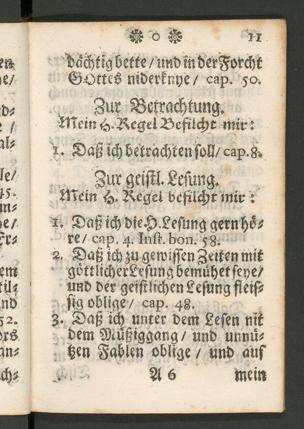 ❁ o ❁ 11
dächtig bette / und in der Forcht
GOttes niderknye / cap. 50.
Zur Betrachtung.
Mein H. Regel Befilcht mir:
1. Daß ich betrachten soll / cap. 8.
Zur geistl. Lesung.
Mein H. Regel befilcht mir:
1. Daß ich die H. Lesung gern hö-
re / cap. 4. Inst. bon. 58.
2. Daß ich zu gewissen Zeiten mit
göttlicher Lesung bemühet seye /
und der geistlichen Lesung fleis-
sig oblige / cap. 48.
3. Daß ich unter dem Lesen nit
dem Müßiggang / und unnü-
tzen Fablen oblige / und auf
A 6 mein